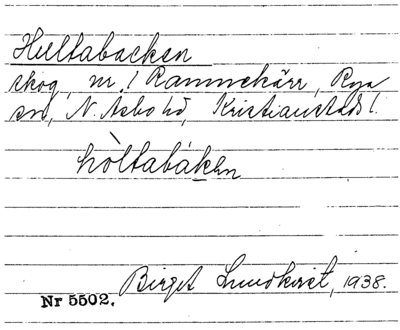 Hultabacken
skog, nr. 1 Rammekärr, Rya
sn, N. Åsbo hd, Kristianstads l.
hòltabáken
Birget Lundkvist, 1938.
Nr 5502.